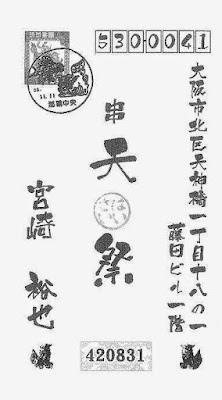 530-0041
大阪市北区天神橋一丁目十八の一
藤田ビル一階
串天祭
宮崎 裕也
那覇中央
420831